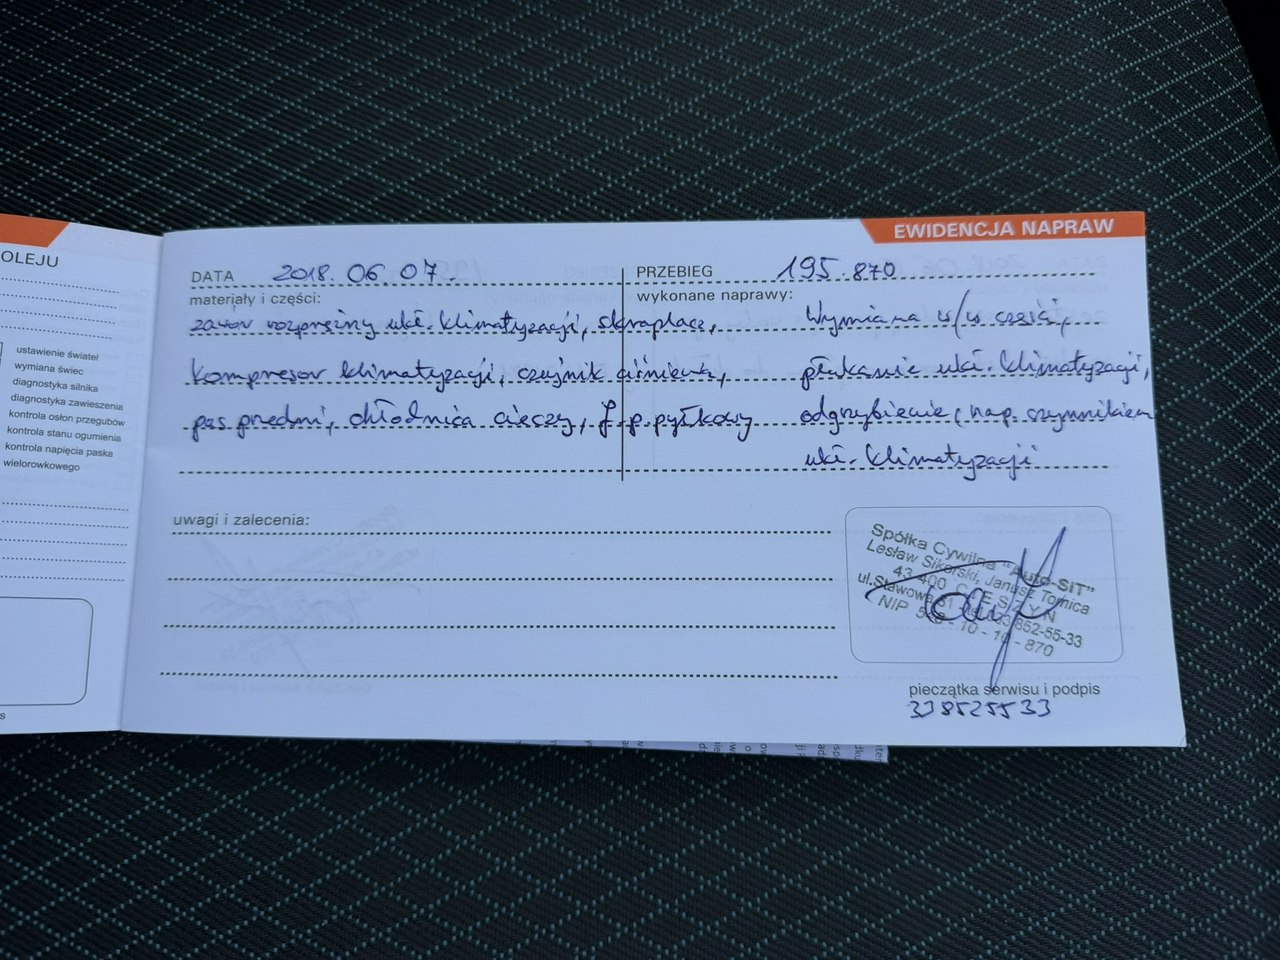 OLEJU
ustawienie świateł
wymiana świec
diagnostyka silnika
diagnostyka zawieszenia
kontrola osłon przegubów
kontrola stanu ogumienia
kontrola napięcia paska
wielorowkowego
EWIDENCJA NAPRAW
DATA 2018.06.07.
PRZEBIEG 195.870
materiały i części:
zawór rozprężny ukł. klimatyzacji, skraplacz,
kompresor klimatyzacji, czujnik ciśnienia,
pas przedni, chłodnica cieczy, f. p. pyłkowy
wykonane naprawy:
Wymiana w/w części,
płukanie ukł. klimatyzacji,
odgrzybienie, nap. czynnikiem
ukł. klimatyzacji
uwagi i zalecenia:
Spółka Cywilna "Auto-SIT"
Lesław Sikorski, Janusz Tomica
43-400 CIESZYN
ul. Stawowa 852-55-33
NIP 548-10-10-870
pieczątka serwisu i podpis
338525533